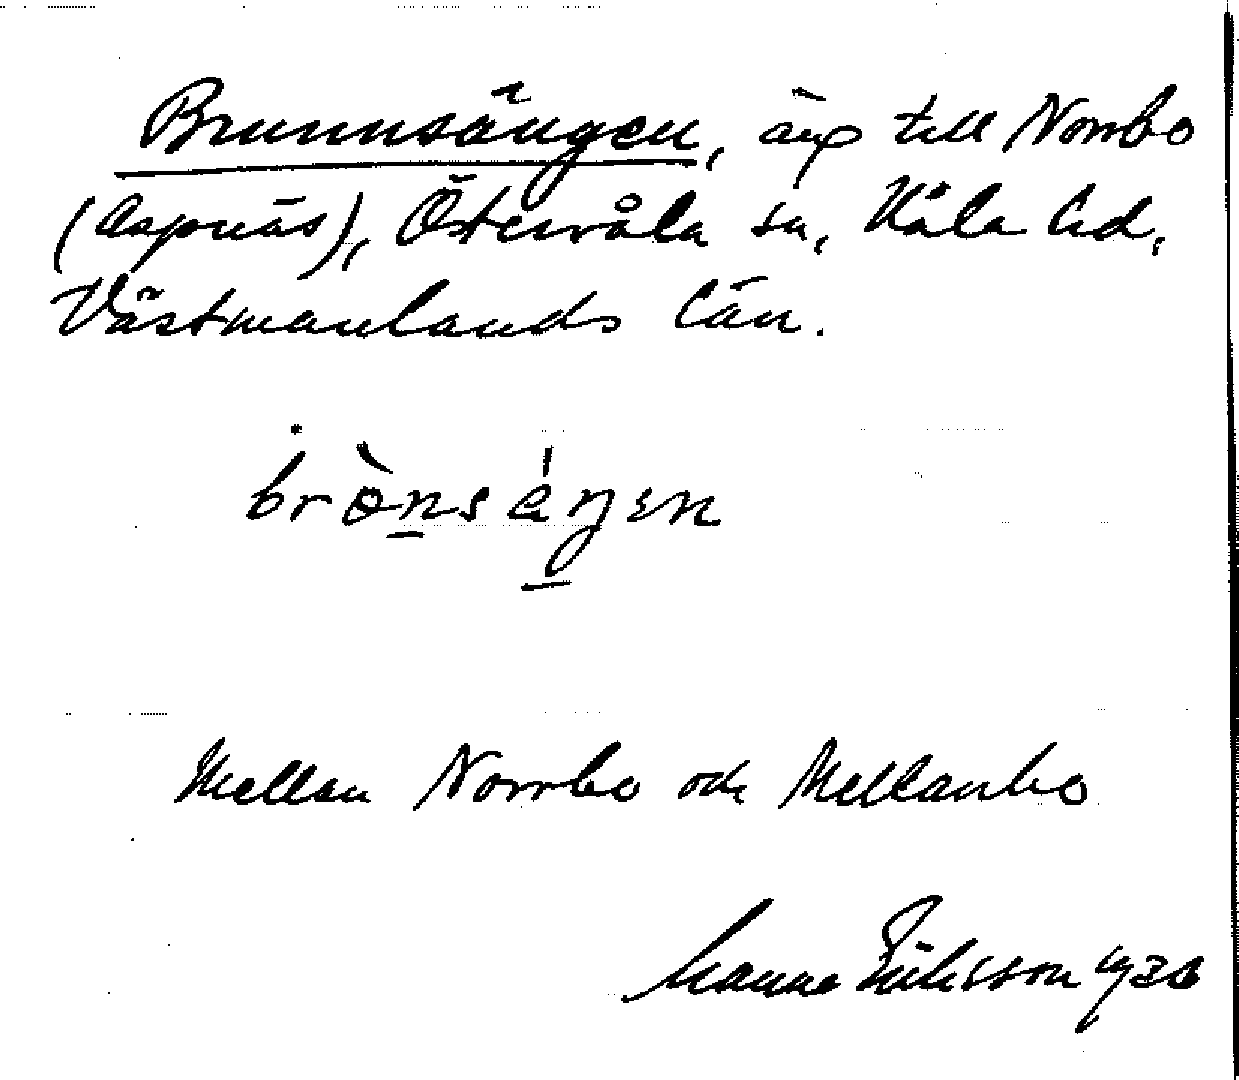 Brunnsängen, äng till Norrbo
(Aspnäs), Östervåla sn, Våla hd,
Västmanlands län.
brònsáŋen
Mellan Norrbo och Mellanbo
Manne Eriksson 193